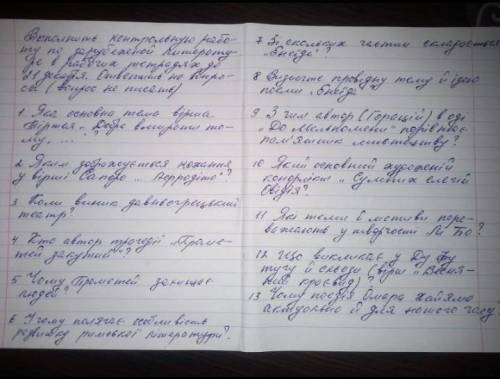 Выполнить контрольную рабо-
ту по зарубежной литерату-
ре в рабочих тетрадях до
21 декабря. Ответить на вопро-
сы (вопрос не писать)
1 Яка основна тема вірша
Тіртея „Добре вмирати то-
му, ...
2 Яким зображується кохання
у вірші Сапфо „ Афродіта"?
3 Коли виник давньогрецький
театр?
4 Хто автор трагедії „Проме-
тей закутий"?
5 Чому Прометей захищає
людей?
6 У чому полягає особливість
розвитку римської літератури?
7 Зі скількох частин складається
„Енеїда"?
8 Визначте провідну тему й ідею
поеми „Енеїда"
9 З чим автор (Горацій) в оді
„До Мельпомени" порівнює
пам'ятник мистецтву?
10 Який основний художній
конфлікт „Сумних елегій"
Овідія?
11 Які теми й мотиви пере-
важають у творчості Лі Бо?
12 Що викликає у Ду Фу
тугу й сльози (вірш „Весня-
ний краєвид)?
13 Чому поезія Омара Хайяма
актуальна й для нашого часу